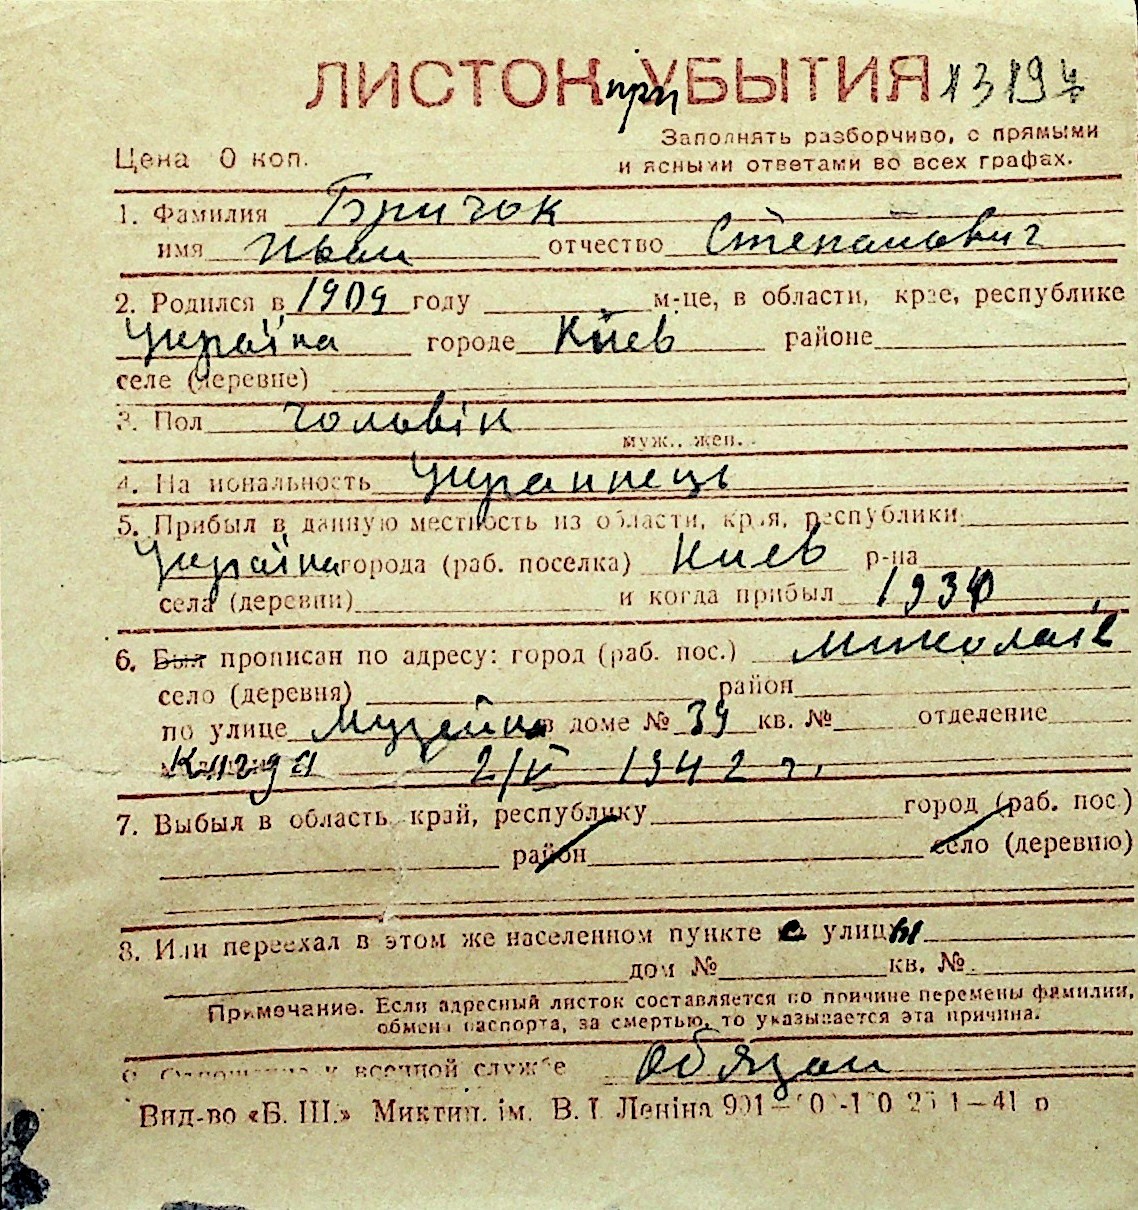 ЛИСТОК при УБЫТИЯ 13197
Заполнять разборчиво, с прямыми
Цена 0 коп. и ясными ответами во всех графах.
1. Фамилия Бричок
имя Иван отчество Степанович
2. Родился в 1909 году м-це, в области, крае, республике
Україна городе Киев районе
селе (деревне)
3. Пол чоловік
муж., жен.
4. Национальность Украинець
5. Прибыл в данную местность из области, края, республики
Україна города (раб. поселка) Киев р-на
села (деревни) и когда прибыл 1930
6. Был прописан по адресу: город (раб. пос.) Миколаїв
село (деревня) район
по улице Музейна в доме № 39 кв. № отделение
Когда 2/V 1942 г.
7. Выбыл в область край, республику город (раб. пос.)
район село (деревню)
8. Или переехал в этом же населенном пункте с улицы
дом № кв. №
Примечание. Если адресный листок составляется по причине перемены фамилии,
обмена паспорта, за смертью, то указывается эта причина.
9. Отношение к военной службе Обязан
Вид-во «Б. Ш.» Миктип. ім. В. І. Леніна